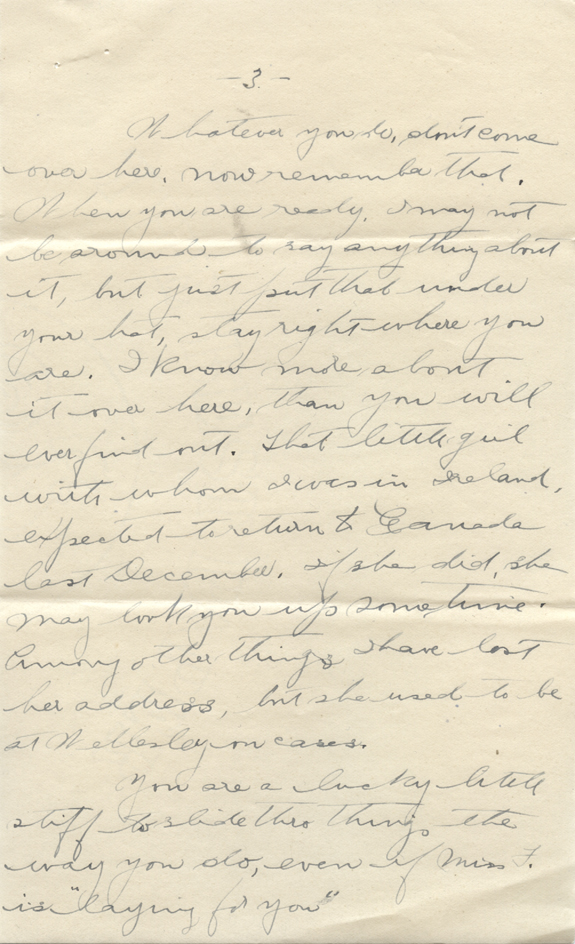 -3-
Whatever you do, don't come
over here. now remember that.
When you are ready, I may not
be around to say anything about
it, but just put that under
your hat, stay right where you
are. I know more about
it over here, than you will
ever find out. That little girl
with whom I was in Ireland,
expected to return to Canada
last December. If she did, she
may look you up sometime.
Among other things I have lost
her address, but she used to be
at Wellesley on cases.
You are a lucky little
stiff to slide thro things the
way you do, even if Miss F.
is "laying for you"